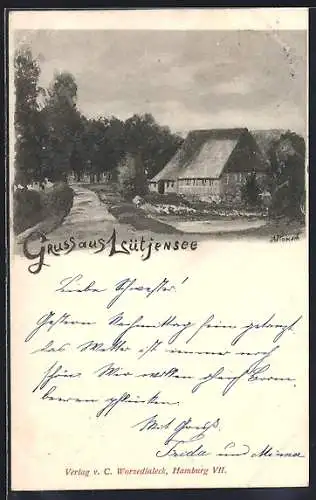 Gruss aus Lütjensee
Liebe Schwester!
Gestern Nachmittag fein gelangt.
das Wetter ist immer noch
schön. Wir wollen gleich Brom-
beeren pflücken.
Mit Gruß
Frida und Minna
Verlag v. C. Worzedialeck, Hamburg VII.